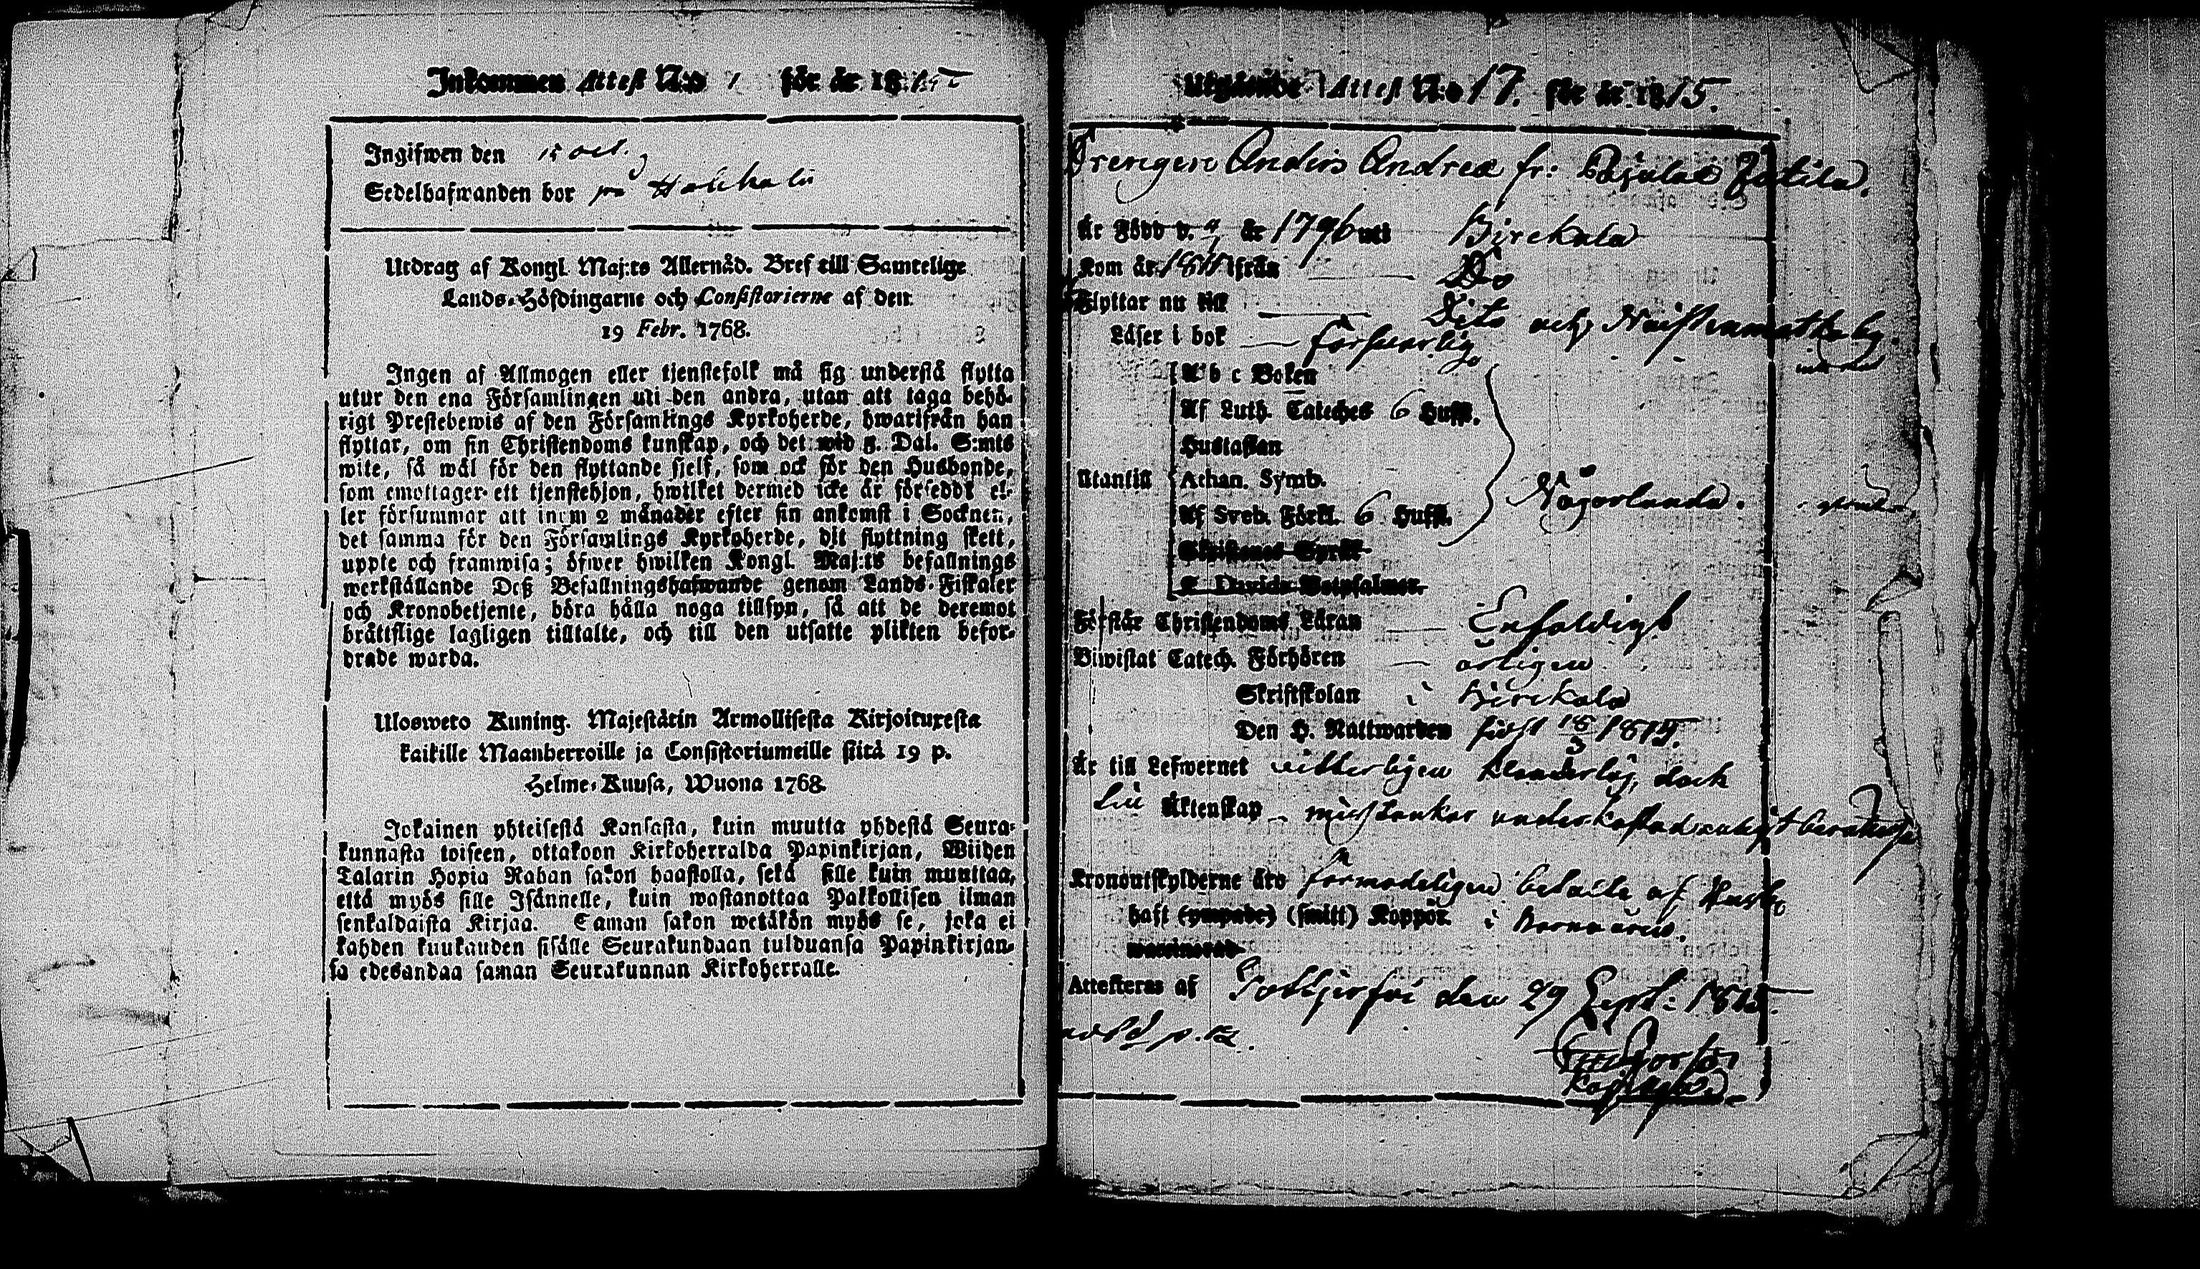 Inkommen Attest N:o 1 för år 1815
Ingifwen den 15 oct.
Sedelhafwanden bor på
Utdrag af Kongl. Maj:ts Allernåd. Bref till Samtelige
Lands-Höfdingarne och Consistorierne af den
19 Febr. 1768.
Ingen af Allmogen eller tjenstefolk må sig understå flytta
utur den ena Församlingen uti den andra, utan att taga behö-
rigt Prestebewis af den Församlings Kyrkoherde, hwarifrån han
flyttar, om sin Christendoms kunskap, och det wid 5. Dal. S:mts
wite, så wäl för den flyttande sjelf, som ock för den Husbonde,
som emottager ett tjenstehjon, hwilket dermed icke är förseddt el-
ler försummar att inom 2 månader efter sin ankomst i Socknen,
det samma för den Församlings Kyrkoherde, dit flyttning skett,
uppte och framwisa; öfwer hwilken Kongl. Maj:ts befallnings
werkställande Deß Befallningshafwande genom Lands-Fiskaler
och Kronobetjente, böra hålla noga tillsyn, så att de deremot
bråttslige lagligen tilltalte, och till den utsatte plikten befor-
drade warda.
Ulosweto Kuning. Majestätin Armollisesta Kirjoituxesta
kaikille Maanherroille ja Consistoriumeille siitä 19 p.
Helme-Kuusa, Wuona 1768.
Jokainen yhteisestä Kansasta, kuin muutta yhdestä Seura-
kunnasta toiseen, ottakoon Kirkoherralda Papinkirjan, Wiiden
Talarin Hopia Rahan sakon haastolla, sekä sille kuin muuttaa,
että myös sille Isännelle, kuin wastanottaa Palkollisen ilman
senkaldaista Kirjaa. Saman sakon wetäkön myös se, joka ei
kahden kuukauden sisälle Seurakundaan tulduansa Papinkirjan-
sa edesandaa saman Seurakunnan Kirkoherralle.
Utgående Attest N:o 17. för år 1815.
Drengen Anders Andrea fr: Pajula
Är Född d. år 1796 uti Birckala
Kom år 1811 ifrån Do
Flyttar nu till Dito och
Läser i bok försvarlig
A b c Boken
Af Luth. Cateches 6 Huff.
Hustaflan
Utantill Athan. Symb.
Någorlunda.
Af Sveb. Förkl. 6 Huff.
Skriftenes Språk
K. Davids Botpsalmer.
Förstår Christendoms Läran Enfaldigt
Biwistat Catech. Förhören årligen
Skriftskolan i Birckala
Den H. Nattwarden sidst 18/3 1815.
Är till Lefwernet vitterligen klanderlös, dock
till Äktenskap misstankar underkastad
Kronoutskylderne äro förmodeligen betalte af
haft (ympade) (smitt) Koppor i Barnaåren.
waccinerad
Attesteras af den 29 Sept: 1815.